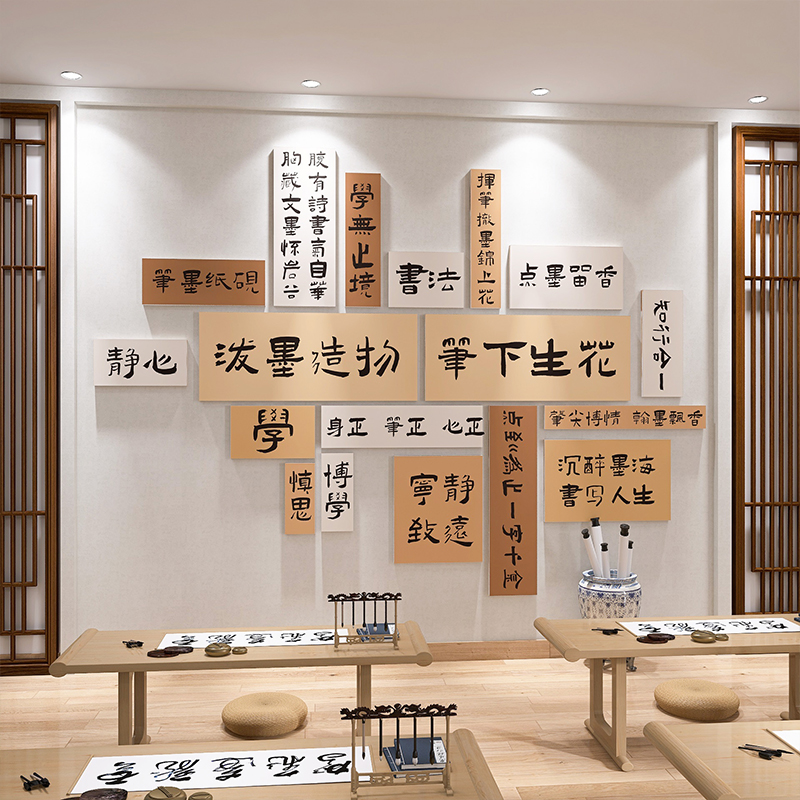 腹有詩書氣自華
胸藏文墨怀若谷
學無止境
揮筆撒墨錦上花
筆墨纸硯
書法
点墨留香
静心
泼墨造物
筆下生花
知行合一
學
身正 筆正 心正
筆尖博情 翰墨飄香
慎思
博學
寧静
致遠
点到為止一字千金
沉醉墨海
書写人生